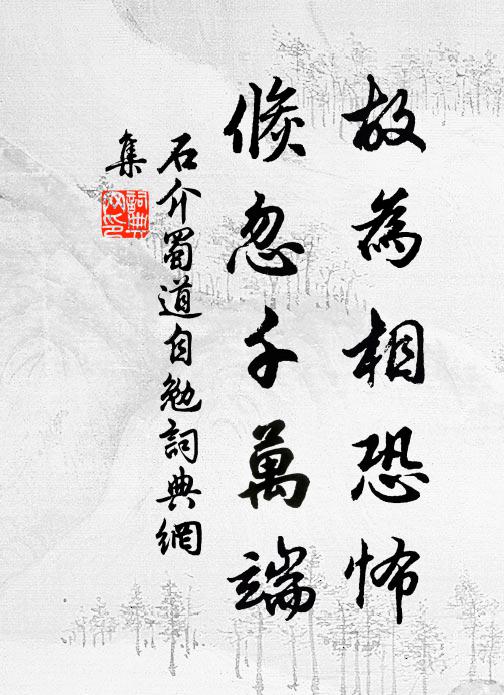 故為相恐怖
倐忽千萬端
石介蜀道自勉詞典網
集
詞典
网印